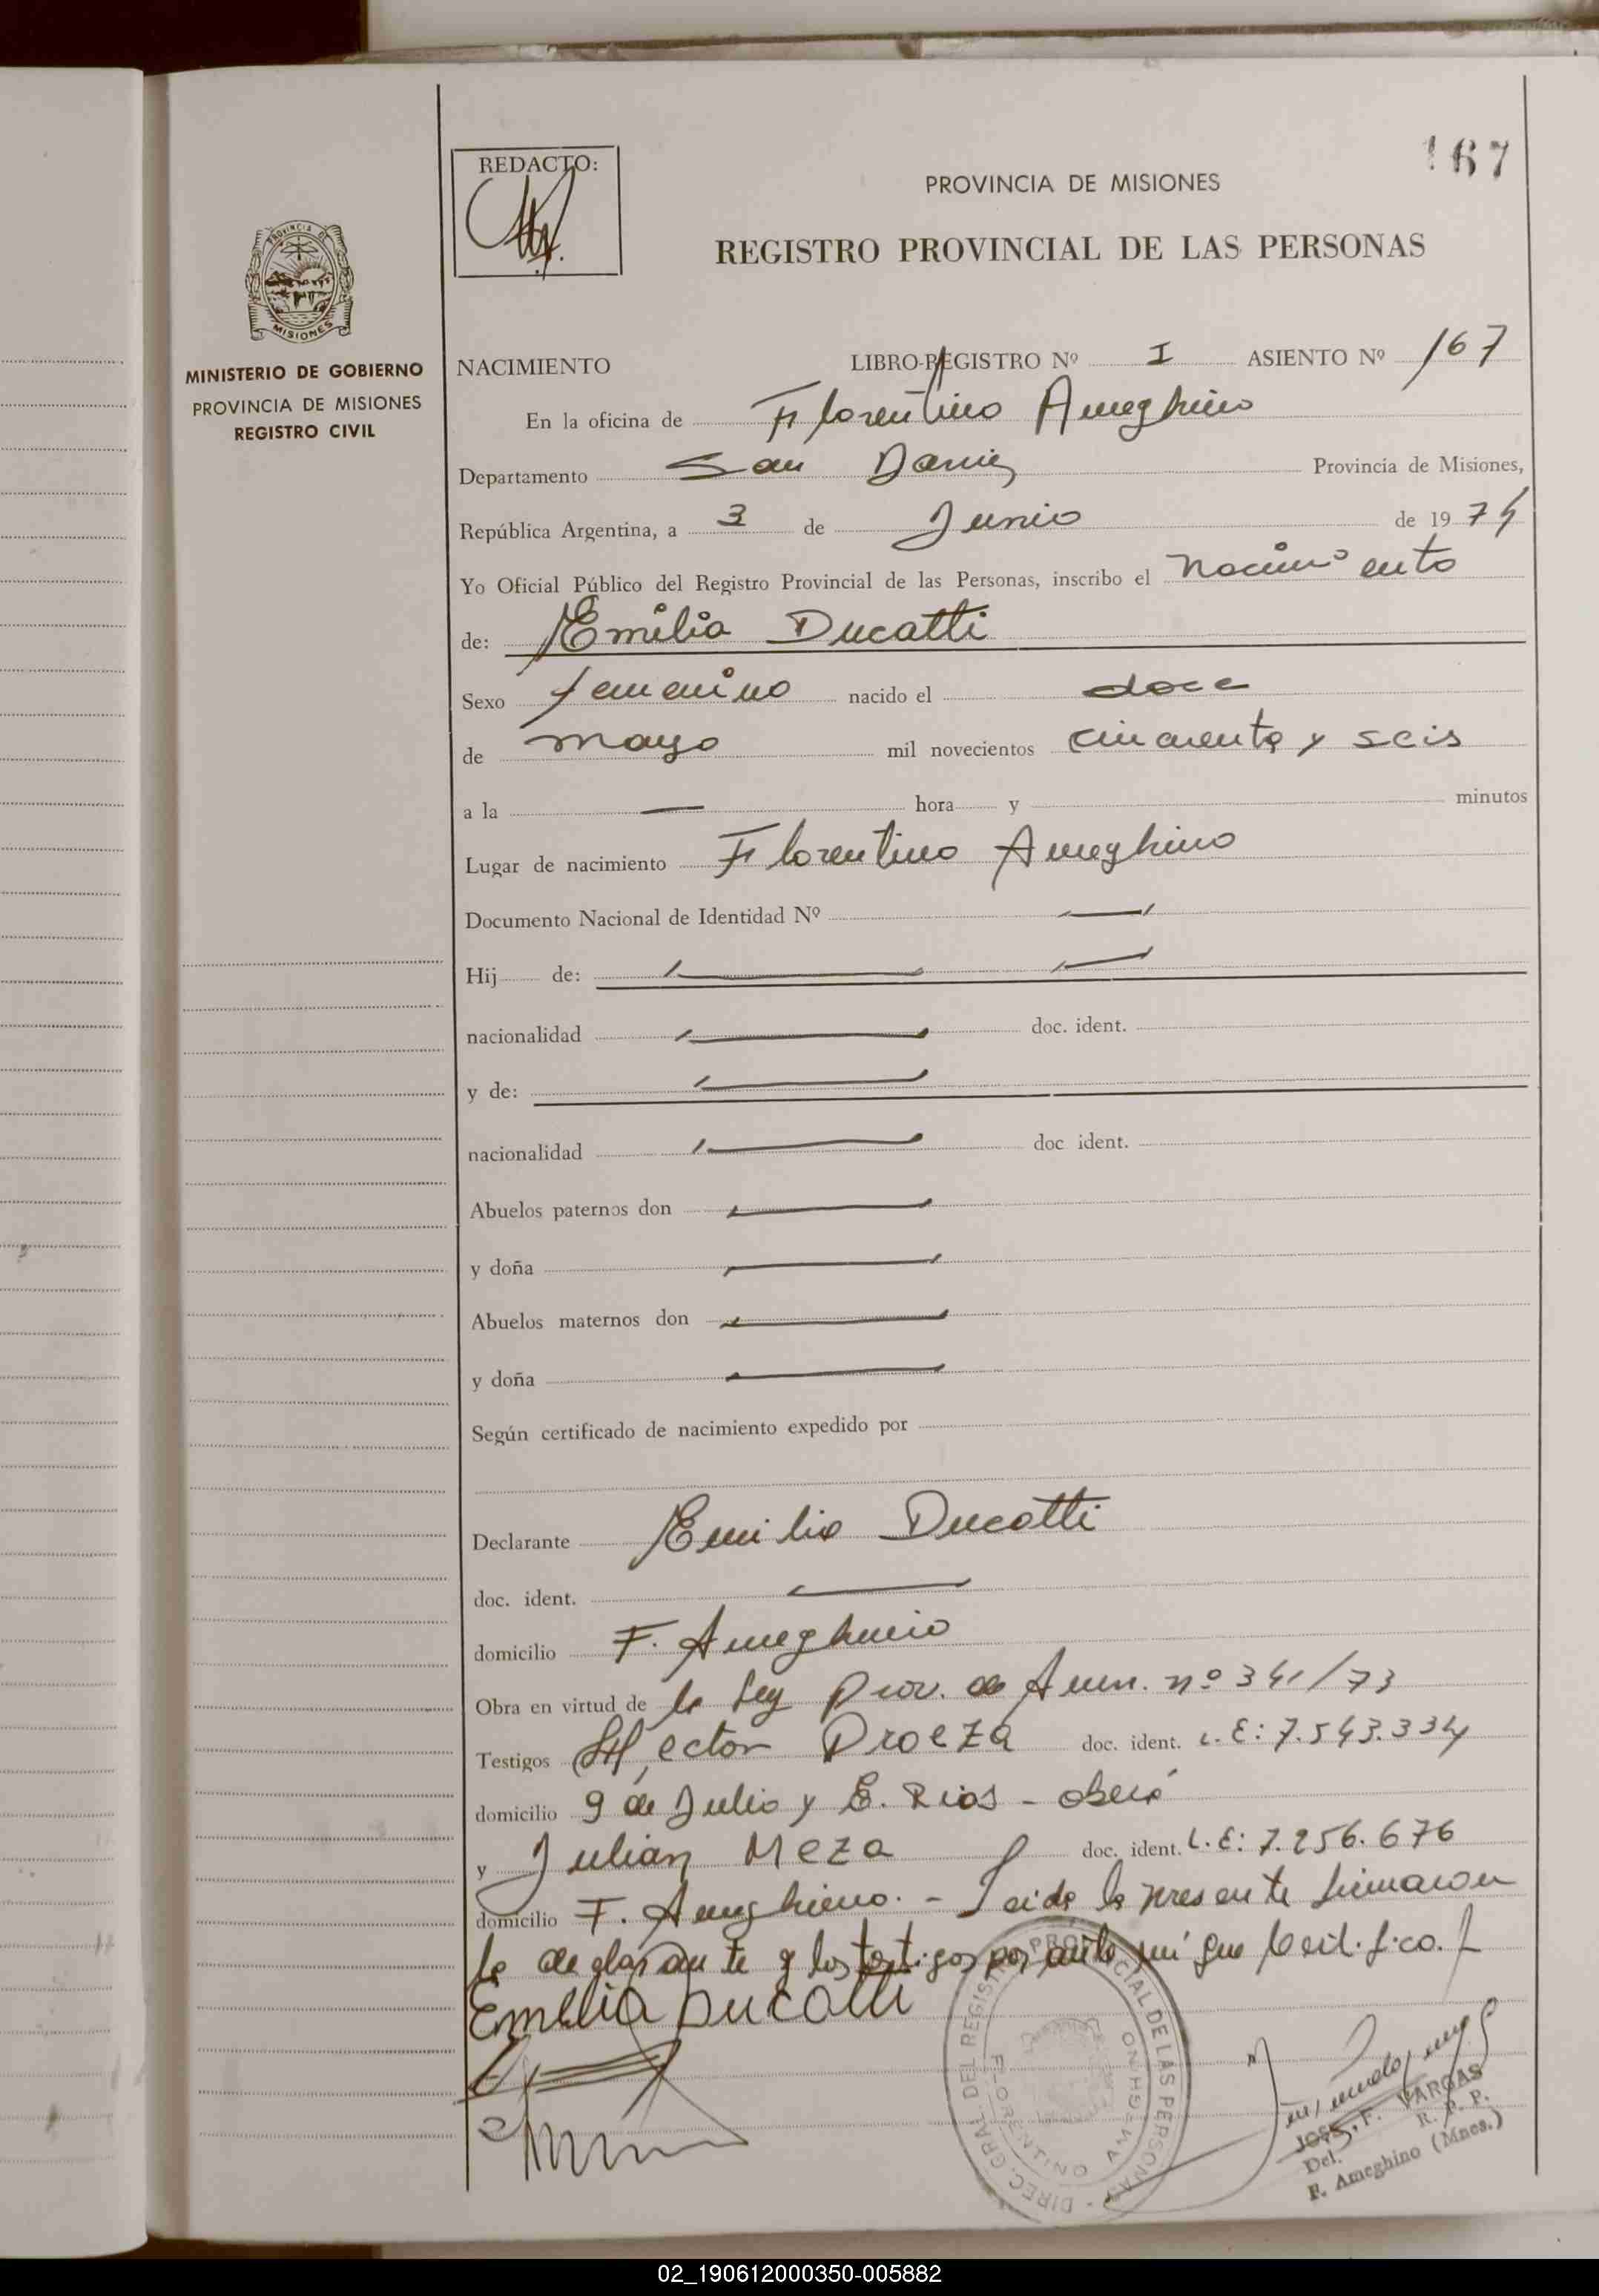 167
REDACTO:
PROVINCIA DE MISIONES
REGISTRO PROVINCIAL DE LAS PERSONAS
PROVINCIA DE MISIONES
MINISTERIO DE GOBIERNO
PROVINCIA DE MISIONES
REGISTRO CIVIL
NACIMIENTO LIBRO-REGISTRO Nº I ASIENTO Nº 167
En la oficina de Florentino Ameghino
Departamento San Javier Provincia de Misiones,
República Argentina, a 3 de Junio de 1974
Yo Oficial Público del Registro Provincial de las Personas, inscribo el Nacimiento
de: Emilia Ducatti
Sexo femenino nacido el doce
de mayo mil novecientos cincuenta y seis
a la — hora y minutos
Lugar de nacimiento Florentino Ameghino
Documento Nacional de Identidad Nº —
Hij de: — —
nacionalidad — doc. ident.
y de: —
nacionalidad — doc ident.
Abuelos paternos don —
y doña —
Abuelos maternos don —
y doña —
Según certificado de nacimiento expedido por
Declarante Emilia Ducatti
doc. ident. —
domicilio F. Ameghino
Obra en virtud de la Ley Prov. de Amn. nº 341/73
Testigos Hector Proeza doc. ident. L.E: 7.543.334
domicilio 9 de Julio y E. Rios - Oberá
y Julian Meza doc. ident. L.E: 7.256.676
domicilio F. Ameghino. - Leida la presente firmaron
la declarante y los testigos por ante mí que Certifico.
Emelia Ducatti
DIREC. GRAL. DEL REGISTRO PROVINCIAL DE LAS PERSONAS
FLORENTINO AMEGHINO
JOSE F. VARGAS
Del. R. P. P.
F. Ameghino (Mnes.)
02_190612000350-005882